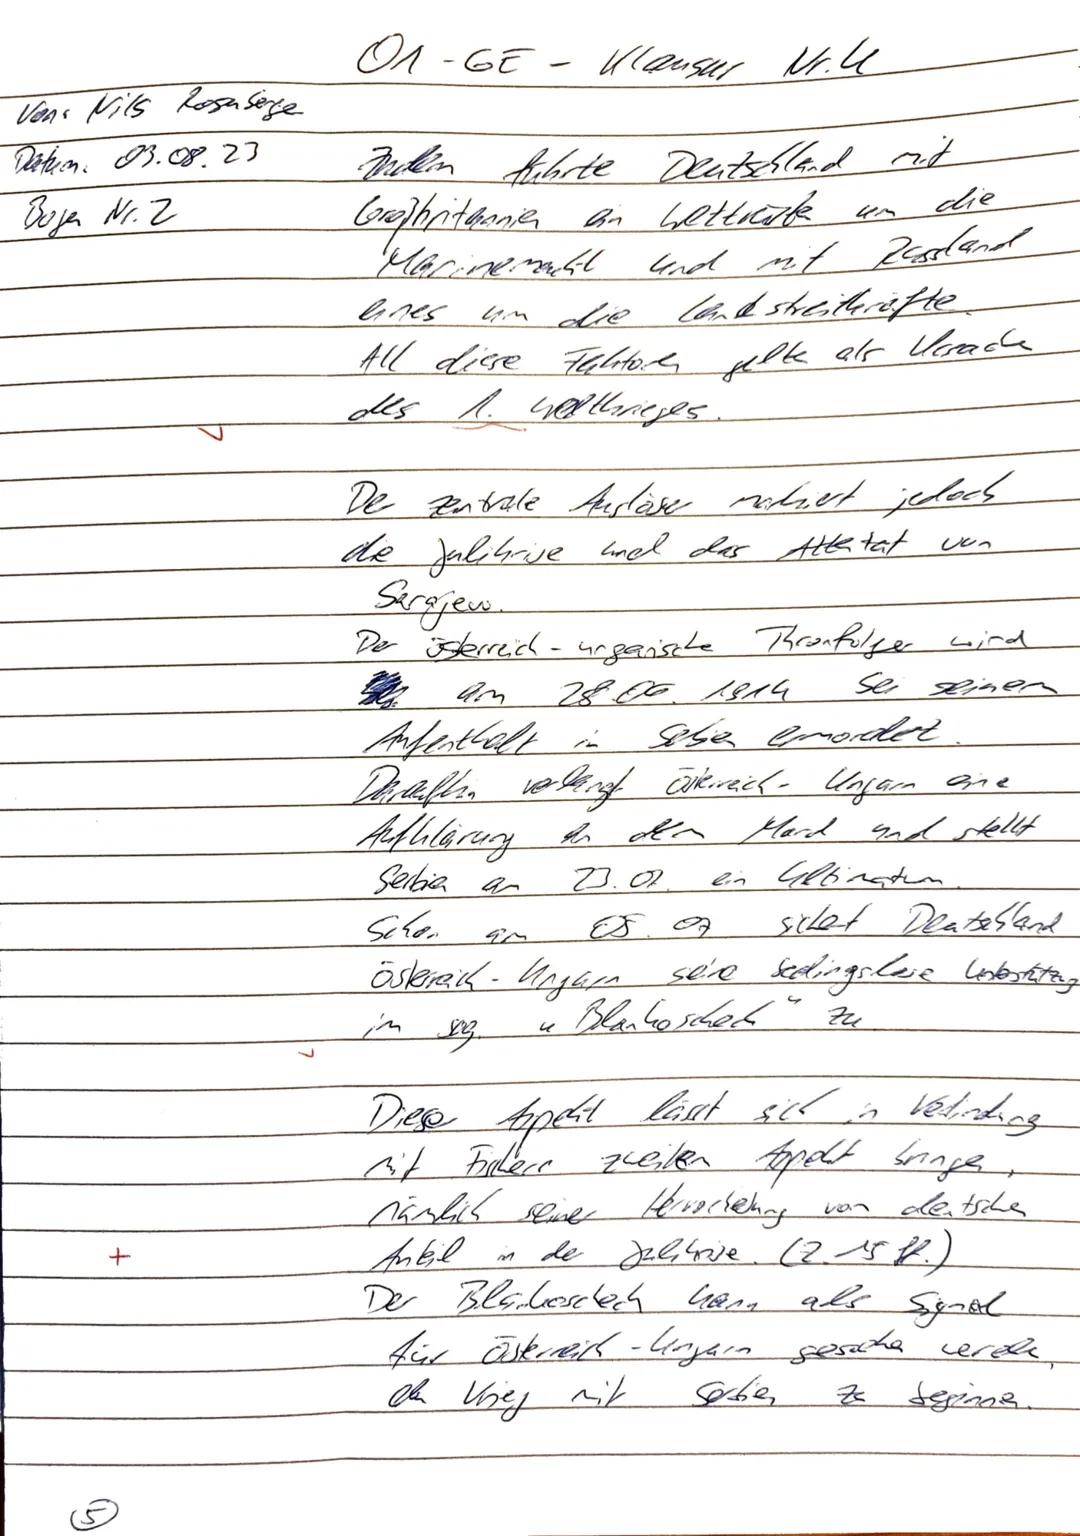 Q1-GE - Klausur Nr. 4
Von: Nils Rosenberger
Datum: 03.08.23
Bogen Nr. 2
Zudem führte Deutschland mit
Großbritannien ein Wettrüsten um die
Marinemacht und mit Russland
eines um die Landstreitkräfte.
All diese Faktoren gelten als Ursache
des 1. Weltkrieges.
Der zentrale Auslöser markiert jedoch
die Julikrise und das Attentat von
Sarajevo.
Der österreich-ungarische Thronfolger wird
am 28.06.1914 bei seinem
Aufenthalt in Serbien ermordet.
Daraufhin verlangt Österreich-Ungarn eine
Aufklärung an dem Mord und stellt
Serbien am 23.07. ein Ultimatum.
Schon am 05.07 sichert Deutschland
Österreich-Ungarn seine bedingslose Unterstützung
im sog. "Blankoscheck" zu
Dieser Aspekt lässt sich in Verbindung
mit Fischers zweiten Aspekt bringen,
nämlich seiner Hervorhebung von deutschen
Anteil in der Julikrise. (Z. 15 ff.)
+
Der Blankoscheck kann als Signal
für Österreich-Ungarn gesehen werden,
den Krieg mit Serbien zu beginnen.
5